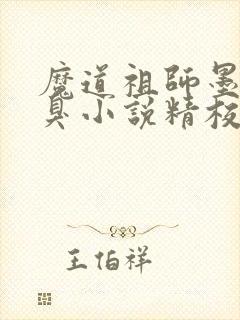 魔道祖師墨
臭小說精校
王伯祥